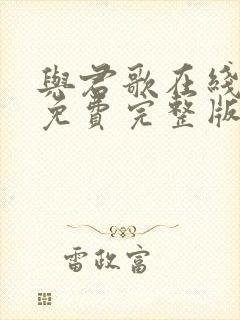 與君歌在綫
免費完整版
雷政富